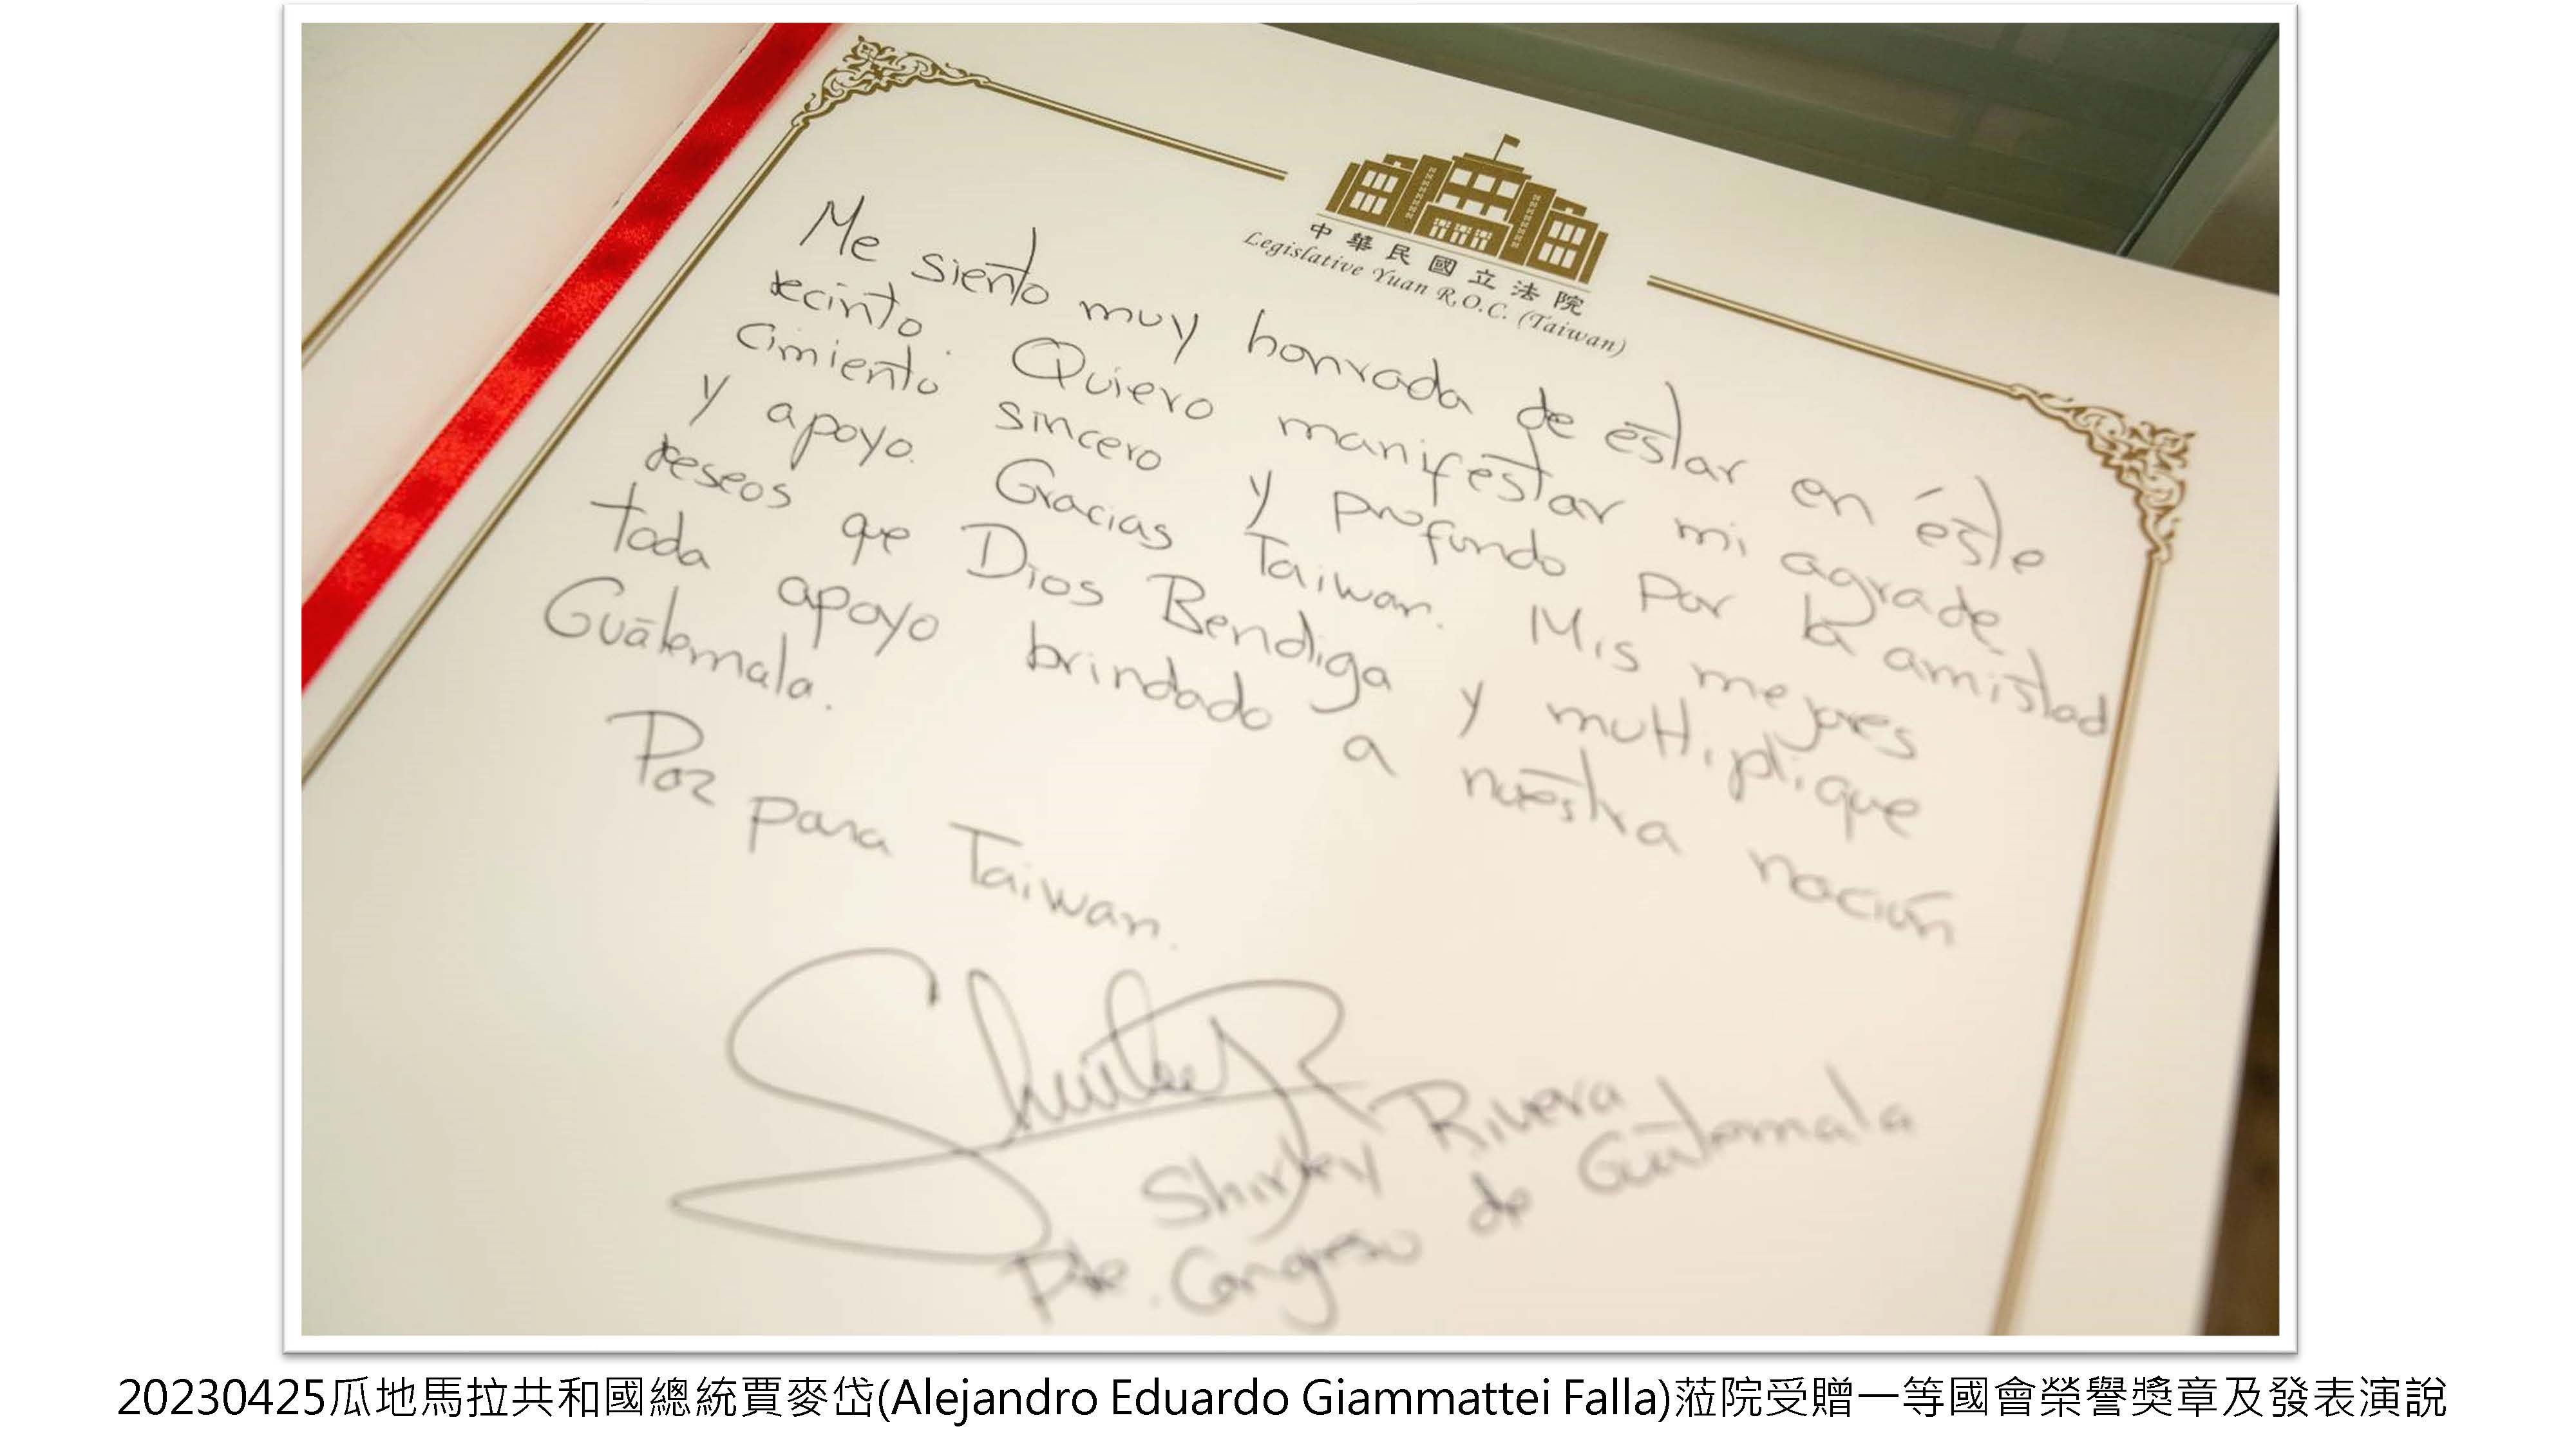 中華民國立法院
Legislative Yuan R.O.C. (Taiwan)
Me siento muy honrada de estar en éste
recinto. Quiero manifestar mi agrade-
cimiento sincero y profundo por la amistad
y apoyo. Gracias Taiwan. Mis mejores
deseos que Dios Bendiga y multiplique
todo apoyo brindado a nuestra nación
Guatemala.
Paz para Taiwan.
Shirley R
Shirley Rivera
Pdte. Congreso de Guatemala
20230425瓜地馬拉共和國總統賈麥岱(Alejandro Eduardo Giammattei Falla)蒞院受贈一等國會榮譽獎章及發表演說